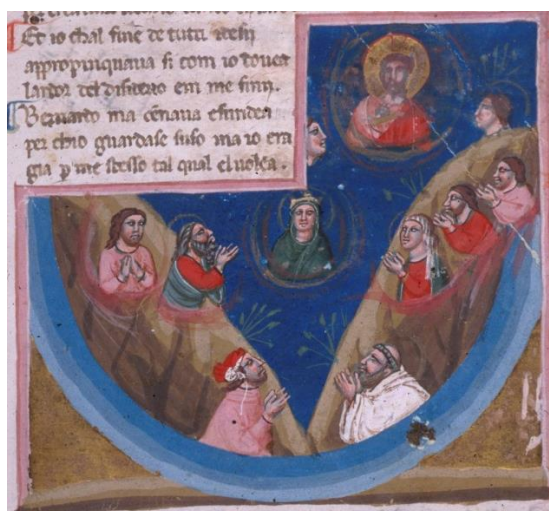 Et io chal fine de tuti desii
appropinquaua si com io doueа
lardor del disiderio em me finii.
Bernardo ma cenaua e suridea
per chio guardase suso ma io era
gia p me stesso tal qual el uolea.